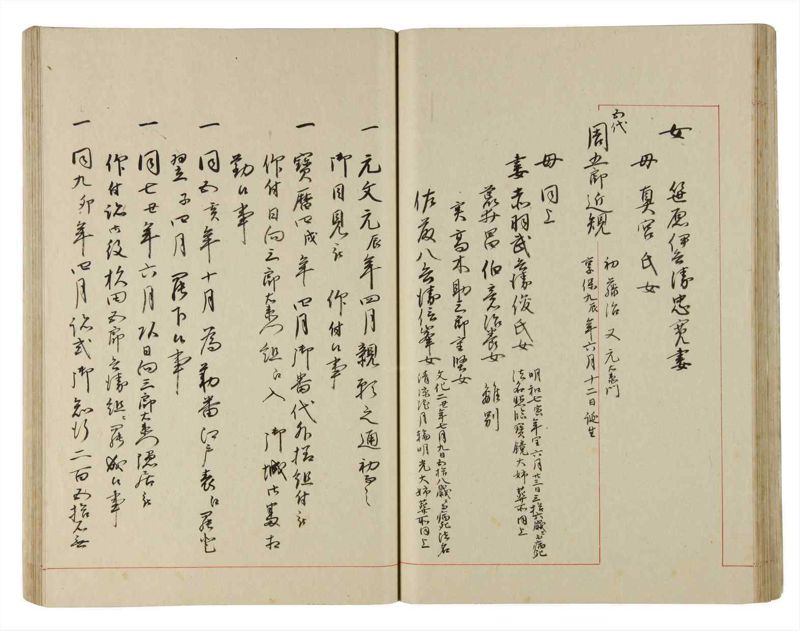 女
笹原伊兵衛忠寛妻
母真宮氏女
五代
周五郎近規
初藤治 又元右衛門
享保九辰年六月十二日誕生
母同上
妻赤羽武兵衛俊氏女
明和七寅年閏六月廿三日三拾六歳ニ而病死
法名照臨寶鏡大姉葬所同上
伯意治養女 離別
実高木助三郎重賢女
佐藤八兵衛信峯女
文化二丑年七月九日五拾八歳ニ而病死法名
清涼院月輪明光大姉葬所同上
一 元文元辰年四月親願之通初而之
御目見被 仰付候事
一 寶暦四戌年四月御番代外様組付被
仰付日向三郎右衛門組ニ入 御城御番相
勤候事
一 同五亥年十月為勤番江戸表江罷登
翌子四月罷下候事
一 同七丑年六月以日向三郎右衛門隠居被
仰付詰御役杉田五郎兵衛組ニ罷成候事
一 同九卯年四月 御知行二百五拾石無